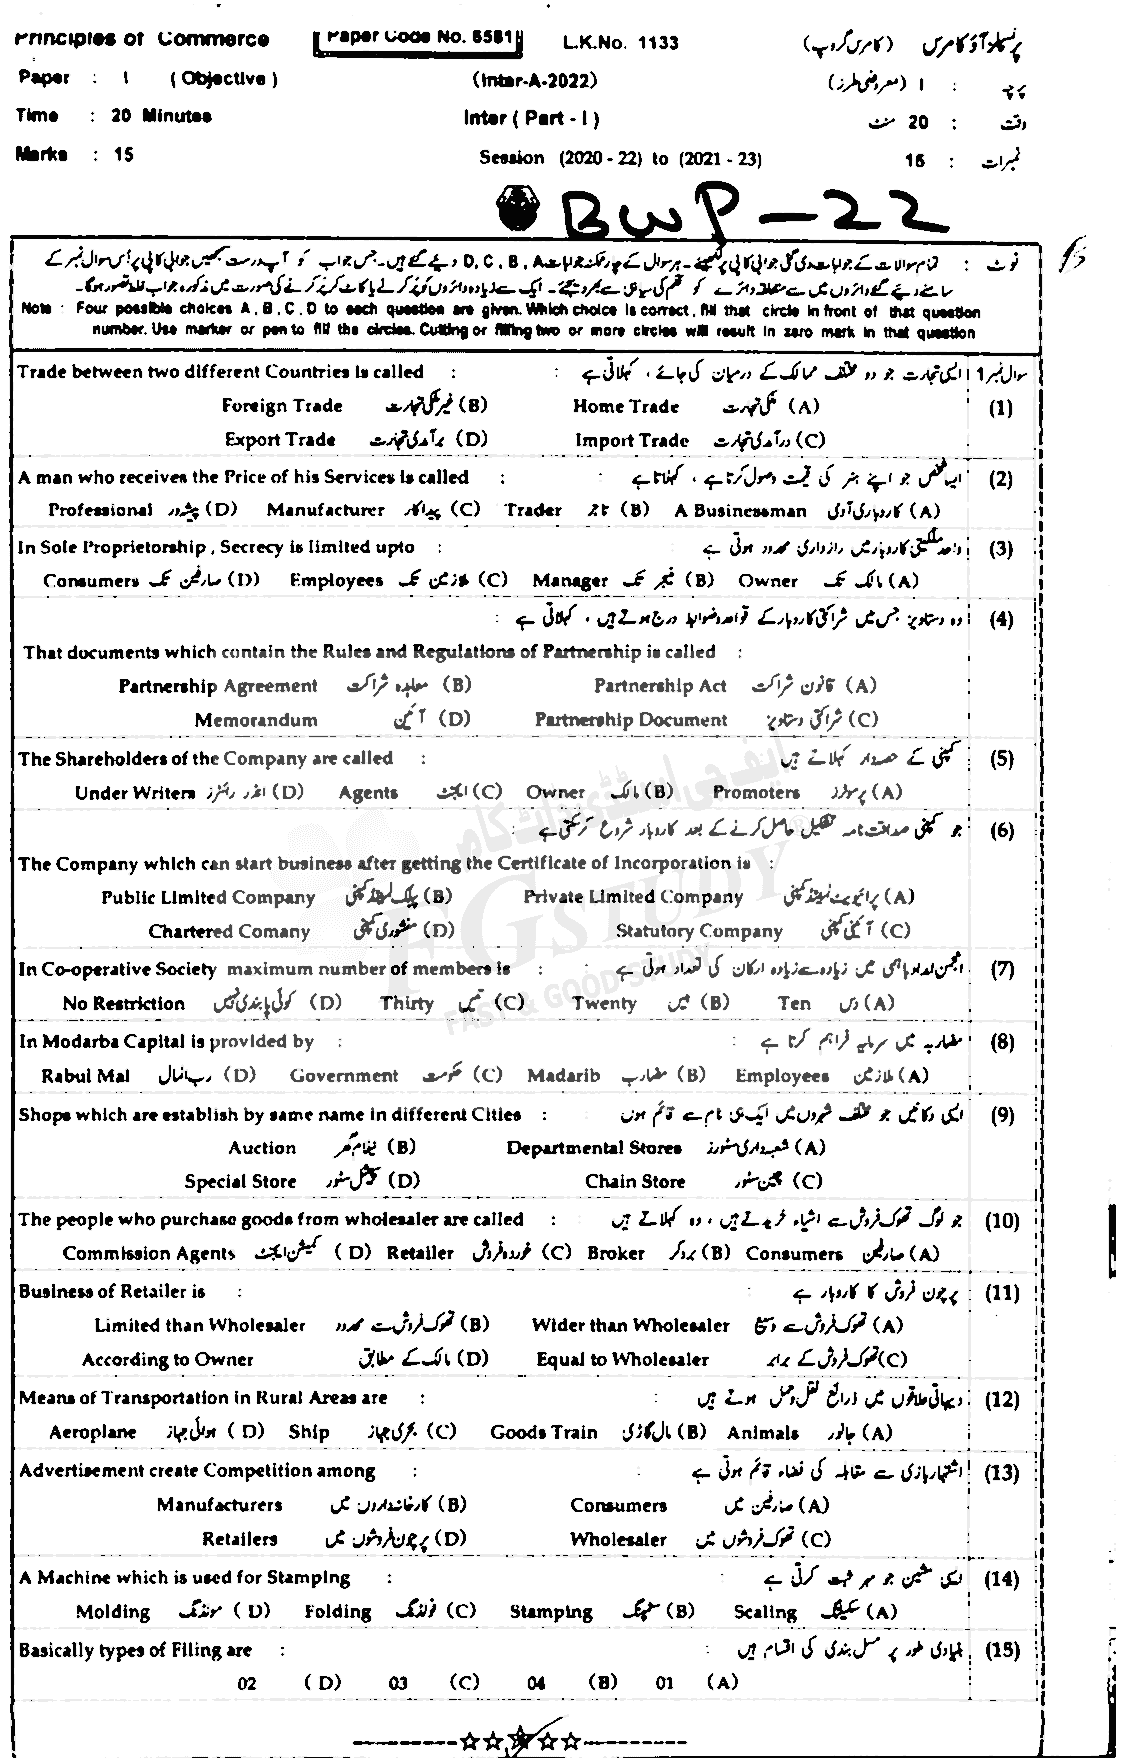 Principles of Commerce Paper Code No. 6581 L.K.No. 1133 پرنسپلز آف کامرس (کامرس گروپ)
Paper : I (Objective) (Inter-A-2022) پرچہ : I (معروضی طرز)
Time : 20 Minutes Inter (Part - I) وقت : 20 منٹ
Marks : 15 Session (2020 - 22) to (2021 - 23) نمبرات : 15
BWP-22
نوٹ : تمام سوالات کے جوابات دی گئی جوابی کاپی پر لکھیئے۔ ہر سوال کے چار ممکنہ جوابات D, C, B, A دیئے گئے ہیں۔ جس جواب کو آپ درست سمجھیں جوابی کاپی پر اُس سوال نمبر کے
سامنے دیئے گئے دائروں میں سے متعلقہ دائرے کو قلم کی سیاہی سے بھر دیجئے۔ ایک سے زیادہ دائروں کو پُر کرنے یا کاٹ کر پُر کرنے کی صورت میں مذکورہ جواب غلط تصور ہوگا۔
Note : Four possible choices A, B, C, D to each question are given. Which choice is correct, fill that circle in front of that question
number. Use marker or pen to fill the circles. Cutting or filling two or more circles will result in zero mark in that question
Trade between two different Countries is called : سوال نمبر 1 ایسی تجارت جو دو مختلف ممالک کے درمیان کی جائے ، کہلاتی ہے :
(1) (A) ملکی تجارت Home Trade (B) غیر ملکی تجارت Foreign Trade
(C) درآمدی تجارت Import Trade (D) برآمدی تجارت Export Trade
A man who receives the Price of his Services is called : ایسا شخص جو اپنے ہنر کی قیمت وصول کرتا ہے ، کہلاتا ہے (2)
(A) کاروباری آدمی A Businessman (B) تاجر Trader (C) پیداکار Manufacturer (D) پیشہ ور Professional
In Sole Proprietorship , Secrecy is limited upto : واحد ملکیتی کاروبار میں رازداری محدود ہوتی ہے (3)
(A) مالک تک Owner (B) منیجر تک Manager (C) ملازمین تک Employees (D) صارفین تک Consumers
وہ دستاویز جس میں شراکتی کاروبار کے قواعد و ضوابط درج ہوتے ہیں ، کہلاتی ہے : (4)
That documents which contain the Rules and Regulations of Partnership is called :
(A) قانون شراکت Partnership Act (B) معاہدہ شراکت Partnership Agreement
(C) شراکتی دستاویز Partnership Document (D) آئین Memorandum
The Shareholders of the Company are called : کمپنی کے حصہ دار کہلاتے ہیں (5)
(A) پرموٹرز Promoters (B) مالک Owner (C) ایجنٹ Agents (D) انڈر رائٹرز Under Writers
جو کمپنی صداقت نامہ تشکیل حاصل کرنے کے بعد کاروبار شروع کر سکتی ہے : (6)
The Company which can start business after getting the Certificate of Incorporation is :
(A) پرائیویٹ لمیٹڈ کمپنی Private Limited Company (B) پبلک لمیٹڈ کمپنی Public Limited Company
(C) آئینی کمپنی Statutory Company (D) منشوری کمپنی Chartered Comany
In Co-operative Society maximum number of members is : انجمن امداد باہمی میں زیادہ سے زیادہ ارکان کی تعداد ہوتی ہے (7)
(A) دس Ten (B) بیس Twenty (C) تیس Thirty (D) کوئی پابندی نہیں No Restriction
In Modarba Capital is provided by : مضاربہ میں سرمایہ فراہم کرتا ہے : (8)
(A) ملازمین Employees (B) مضارب Madarib (C) حکومت Government (D) رب المال Rabul Mal
Shops which are establish by same name in different Cities : ایسی دکانیں جو مختلف شہروں میں ایک ہی نام سے قائم ہوں (9)
(A) شعبہ داری سٹورز Departmental Stores (B) نیلام گھر Auction
(C) چین سٹور Chain Store (D) سپیشل سٹور Special Store
The people who purchase goods from wholesaler are called : جو لوگ تھوک فروش سے اشیاء خریدتے ہیں ، وہ کہلاتے ہیں (10)
(A) صارفین Consumers (B) بروکر Broker (C) خوردہ فروش Retailer (D) کمیشن ایجنٹ Commission Agents
Business of Retailer is : پرچون فروش کا کاروبار ہے (11)
(A) تھوک فروش سے وسیع Wider than Wholesaler (B) تھوک فروش سے محدود Limited than Wholesaler
(C) تھوک فروش کے برابر Equal to Wholesaler (D) مالک کے مطابق According to Owner
Means of Transportation in Rural Areas are : دیہاتی علاقوں میں ذرائع نقل و حمل ہوتے ہیں : (12)
(A) جانور Animals (B) مال گاڑی Goods Train (C) بحری جہاز Ship (D) ہوائی جہاز Aeroplane
Advertisement create Competition among : اشتہار بازی سے مقابلہ کی فضاء قائم ہوتی ہے (13)
(A) صارفین میں Consumers (B) کارخانہ داروں میں Manufacturers
(C) تھوک فروشوں میں Wholesaler (D) پرچون فروشوں میں Retailers
A Machine which is used for Stamping : ایسی مشین جو مہر ثبت کرتی ہے : (14)
(A) سکیلنگ Scaling (B) سٹیمپنگ Stamping (C) فولڈنگ Folding (D) مولڈنگ Molding
Basically types of Filing are : بنیادی طور پر مسل بندی کی اقسام ہیں (15)
(A) 01 (B) 04 (C) 03 (D) 02
ایف جی اسٹڈی ڈاٹ کام
FGSTUDY
FAST & GOOD STUDY